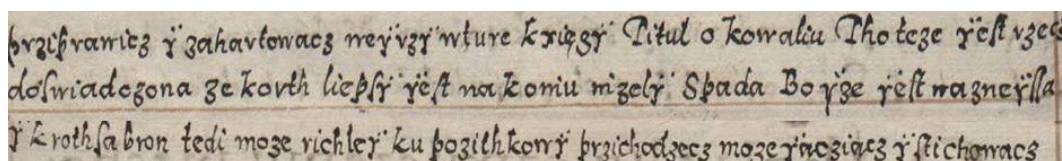 przibrawicz ÿ zahartowacz weyrzÿ wture kxięgÿ Titul o kowaliu Tho teze ÿest rzecz
doswiadczona ze korth liepsÿ ÿest na koniu nizelÿ Spada Bo ÿze ÿest waznieÿssa
ÿ kroth sa bron tedi moze richleÿ ku pozithkowÿ przichodzecz moze ÿacziącz ÿ stichowacz